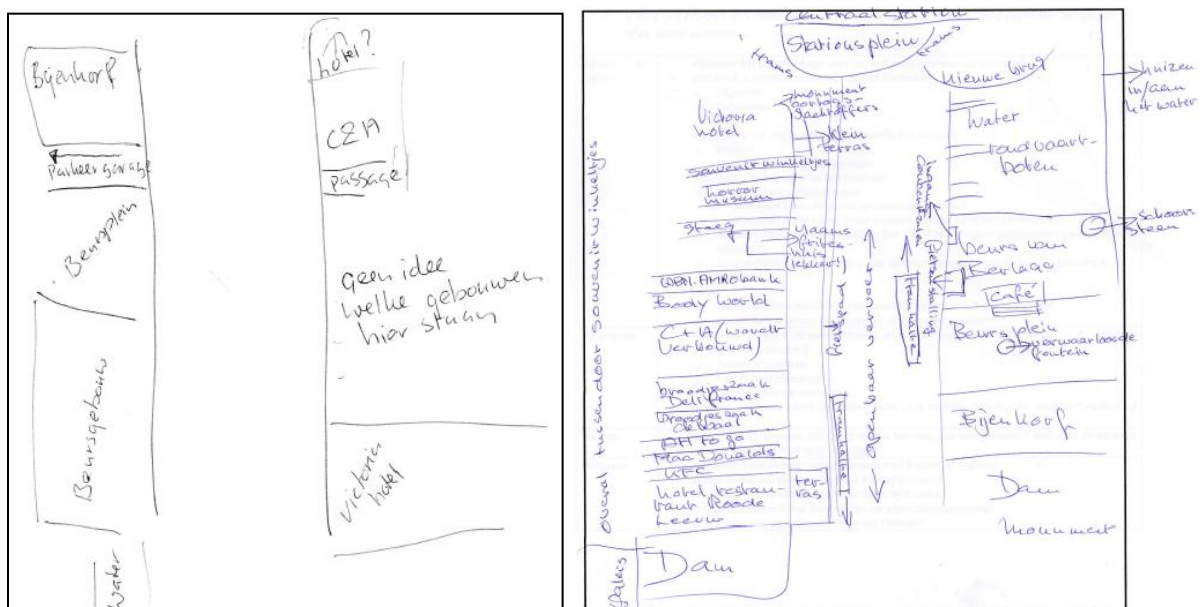 Bijenkorf
Parkeergarage
Beursplein
Beursgebouw
water
hotel?
C&A
passage
geen idee
welke gebouwen
hier staan
Victoria
hotel
Centraal station
Stationsplein
trams
trams
Nieuwe brug
huizen
in/aan
het water
Victoria
hotel
monument
oorlogs-
slachtoffers
klein
terras
souvenirwinkeltjes
horror
museum
steeg
Vlaams
frites-
huis
(lekker!)
ABN-AMRObank
Body world
C+A (wordt
verbouwd)
broodjeszaak
Délifrance
broodjeszaak
de Waal
AH to go
MacDonalds
KFC
hotel restau-
rant Roode
Leeuw
ter-
ras
Dam
Paleis
overal tussendoor souvenirwinkeltjes
fietspad
tramhalte
openbaar vervoer
tramhalte
fietsenstalling
ingang
water
rondvaart-
boten
schoor-
steen
beurs van
Berlage
Café
Beursplein
verwaarloosde
fontein
Bijenkorf
Dam
monument